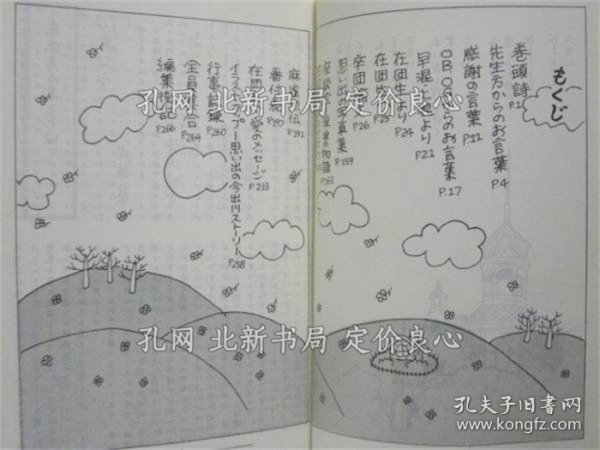 もくじ
巻頭詩 P.1
先生方からのお言葉 P.4
感謝の言葉 P.11
OB・OGからのお言葉 P.17
早混 より P.21
在団生より P.24
在団 P.25
卒団 P.26
思い出の写真集 P.159
麻 伝 P.192
番付 P.197
在団 愛のメッセージ P.233
イラスト 思い出の今出川ストーリー P.258
行事 録 P.260
全員 P.264
編集 記 P.266
孔网 北新书局 定价良心
孔网 北新书局 定价良心
孔夫子旧书网
www.kongfz.com